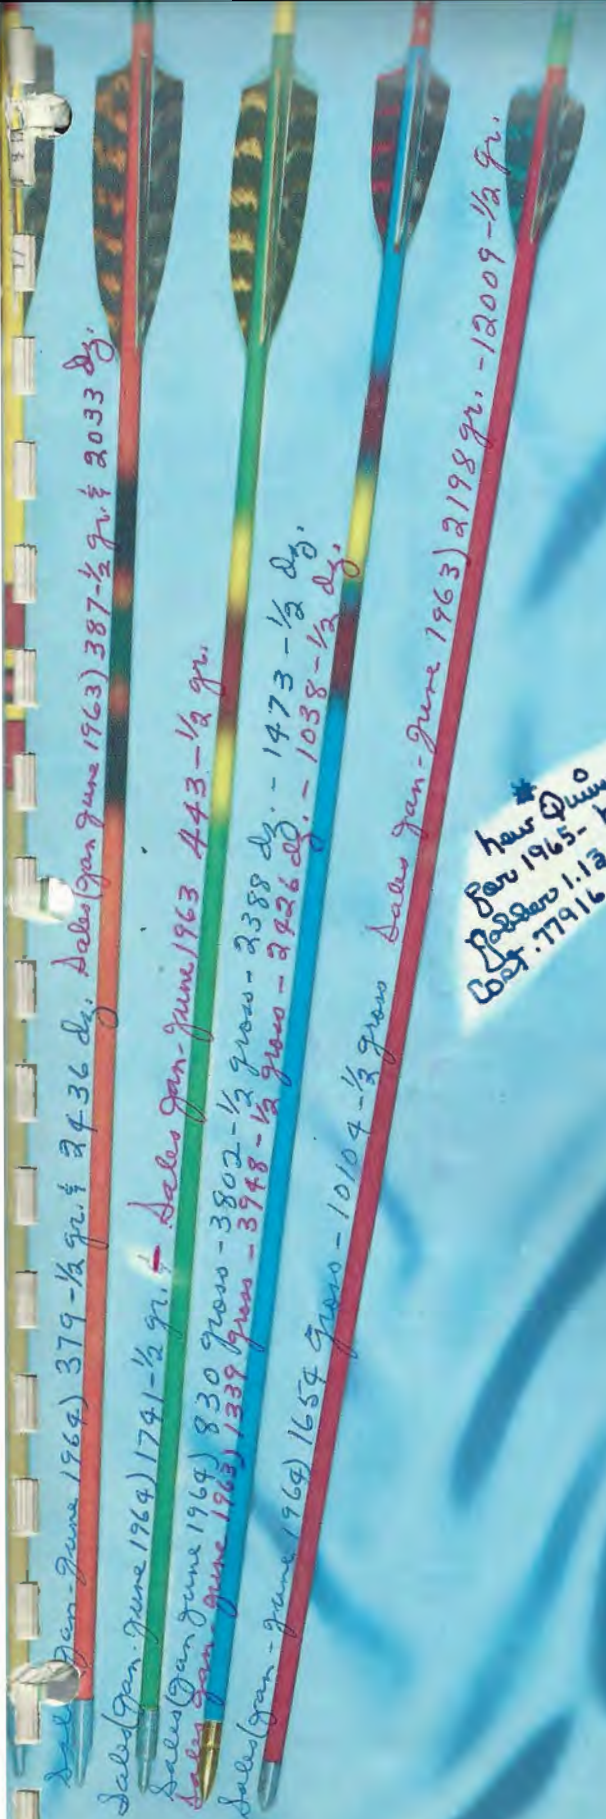 Sales (Jan-June 1964) 379-1/2 gr. & 2436 dz. Sales (Jan June 1963) 387-1/2 gr. & 2033 dz.
Sales (Jan-June 1964) 1741-1/2 gr. & Sales Jan-June 1963 443-1/2 gr.
Sales (Jan June 1964) 830 gross-3802-1/2 gross-2388 dz.-1473-1/2 dz.
Sales Jan-June 1963) 1339 gross-3948-1/2 gross-2426 dz.-1038-1/2 dz.
Sales (Jan-June 1964) 1654 gross-10104-1/2 gross Sales Jan-June 1963) 2198 gr.-12009-1/2 gr.
*
new
for 1965-
Jobber 1.12
Cost .77916